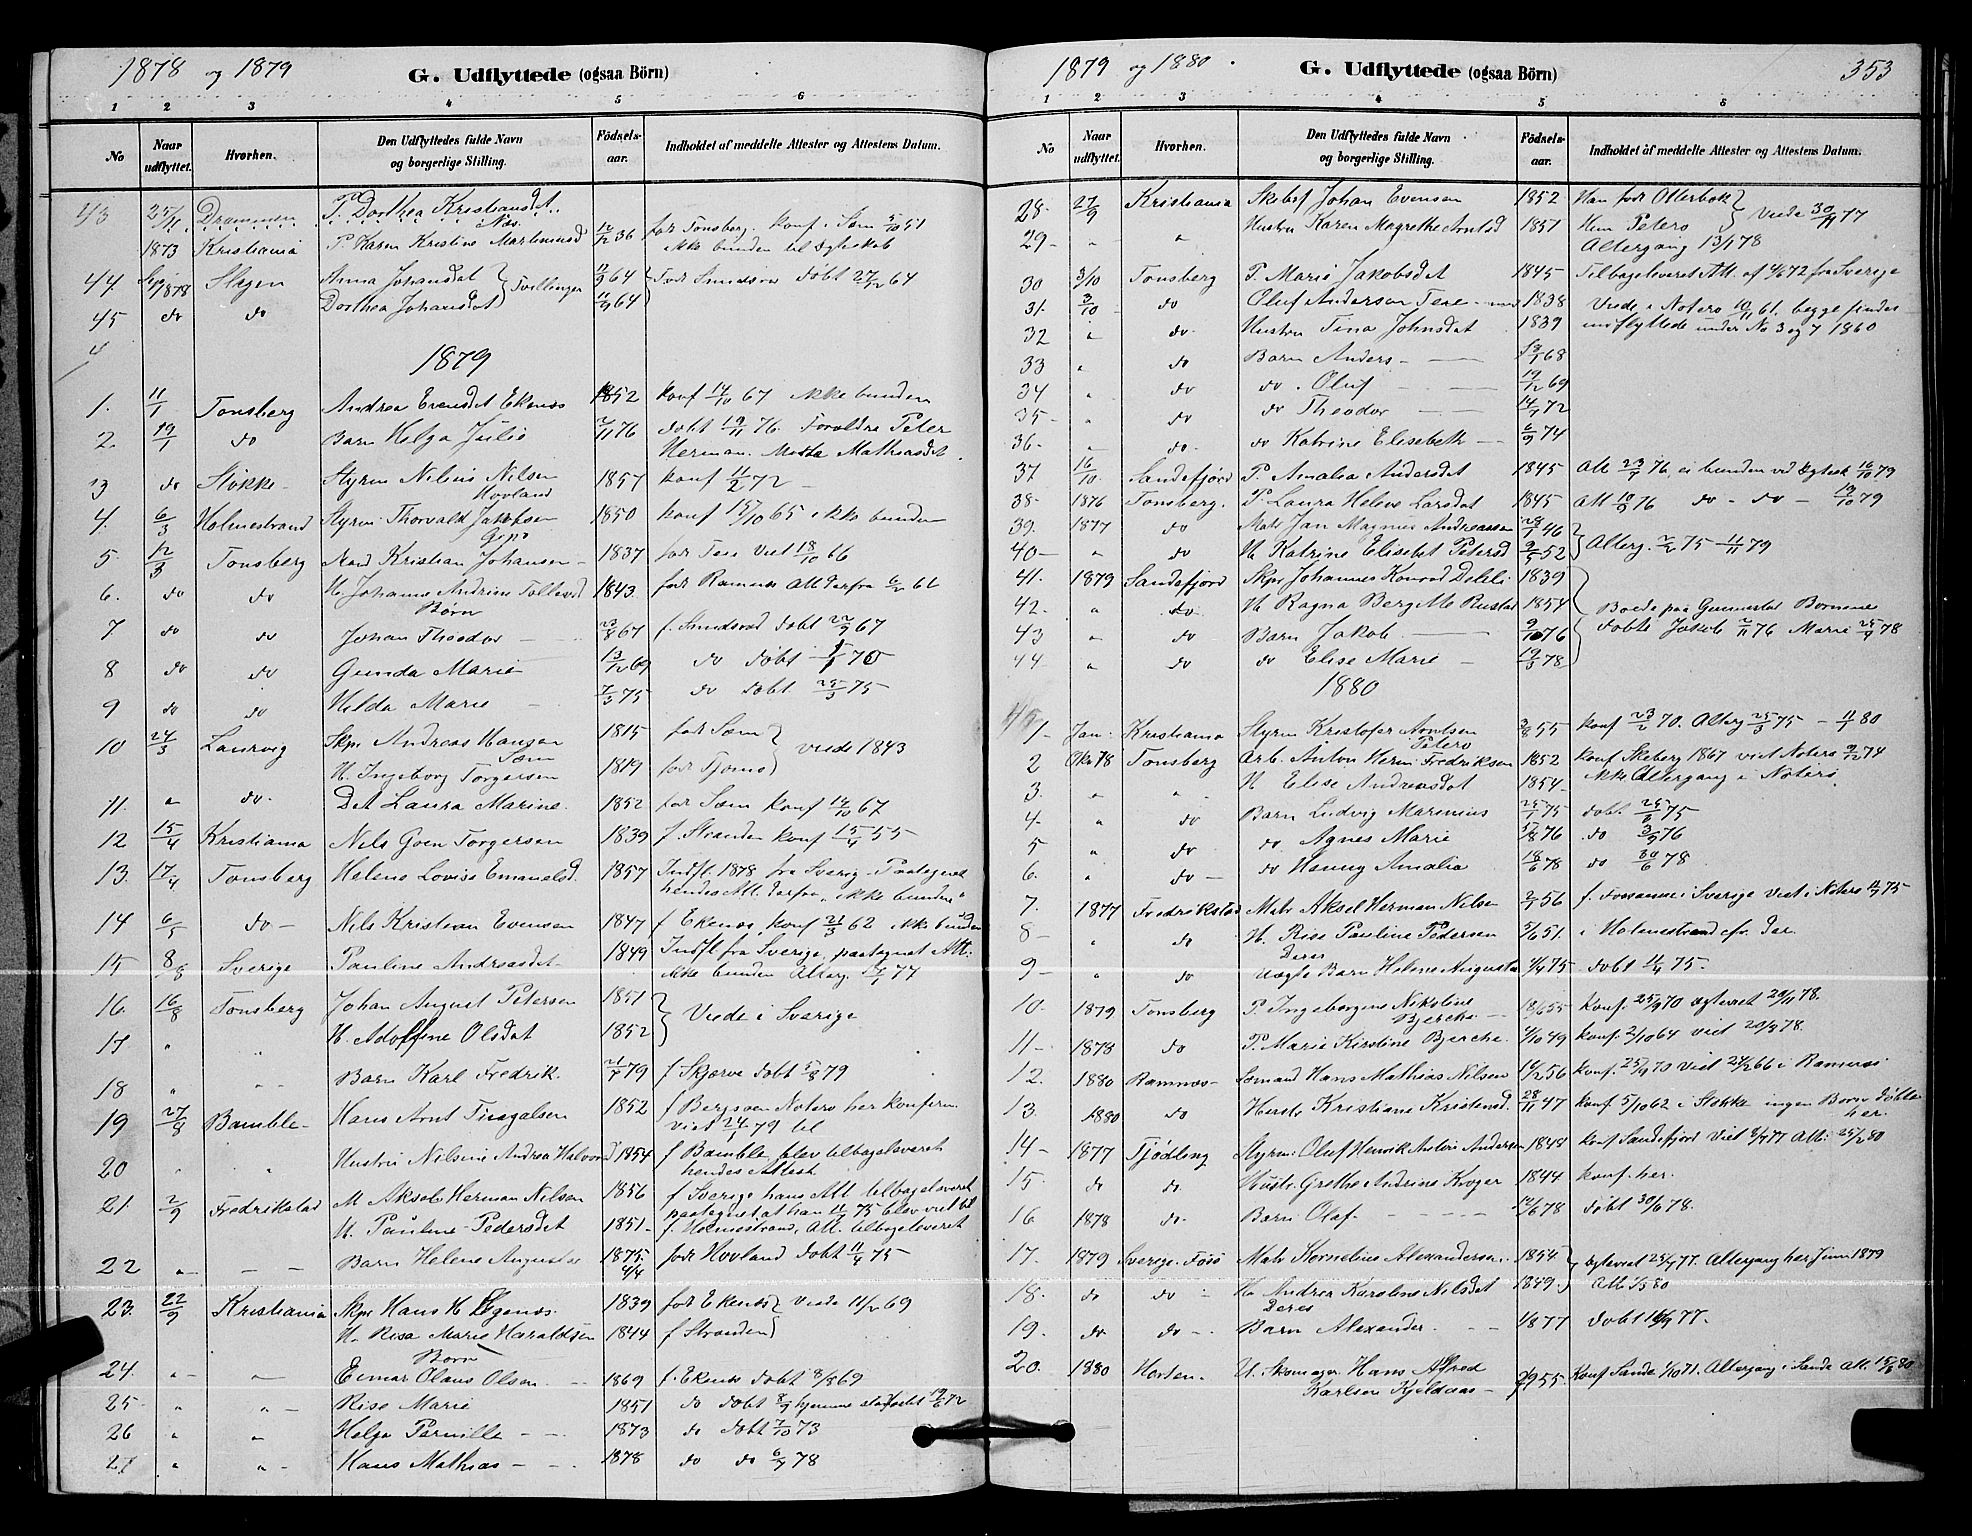 1878 og 1879
G. Udflyttede (ogsaa Börn)
1 2 3 4 5 6
No Naar udflyttet. Hvorhen. Den Udflyttedes fulde Navn og borgerlige Stilling. Födsels-aar. Indholdet af meddelte Attester og Attestens Datum.
43 Drammen P. Dorthea Kristiansdt
Næs
1873 Kristiania P Karen Kristine Martinusd 12/2 36 født Tønsberg. Konf i Sem 5/10 51
ikke bunden til Egteskab
44 Sep 1878 Slagen Anna Johansdat } Tvillinger 11/9 64 Født Smidsrød døbt 27/12 64
45 do do Dorthea Johansdat 11/9 64
1879
1. 11/1 Tønsberg Andrea Evensdt Ekenæs 1852 konf 14/10 67 ikke bunden
2. 19/1 do Barn Helga Julie 2/11 76 døbt 19/11 76. Forældre Peter
Herman. Mathiasdt
3 do Stokke Styrm Nilius Nilsen 1857 konf 11/2 72
Hovland
4. 6/3 Holmestrand Styrm. Thorvald Jakobsen 1850 konf 15/10 65 ikke bunden
5 12/3 Tønsberg Kristian Johansen 1837 født Teie Viet 18/10 66
6. do do H. Johanne Andrine Tollevsd 1843. født Ramnes Att derfra 6/2 66
Børn
7 do do Johan Theodor 23/8 67 f. Smidsrød døbt 22/9 67
8 do do Gunda Marie 13/12 69 do døbt 70
9 do do Hilda Marie 7/3 75 do døbt 25/3 75
10 24/3 Laurvig Skpr Andreas Hansen 1815 født Sem } viede 1843
Sem
H. Ingeborg Torgersen 1819 født Tjømø
11. " do. Det Laura Marine 1852 født Sem konf 14/10 67
12 15/4 Kristiania Nils Goen Torgersen 1839 f. Stranden konf 15/4 55
13. 17/4 Tønsberg Helene Lovise Emanelsd. 1857 Indfl. 1878 fra Sverig. Paategnet
hendes Att. derfra "ikke bunden"
14 6/5 do Nils Kristian Evensen 1847 f Ekenæs konf 21/3 62 ikke bunden
15 8/8 Sverige Pauline Andreasdt 1849 Indfl fra Sverige, paategnet Att.
ikke bunden Alterg. 77
16. 16/8 Tønsberg Johan August Petersen 1851 } Viede i Sverige
17 " " H. Adolfine Olsdat 1852
18 " " Barn Karl Fredrik 21/7 79 f Skjerve døbt 5/8 79
19 27/8 Bamble Hans Arnt 1852 f Bergsven Notero her konferm.
viet 24/1 79 til
20 " " Hustru Nilsine Andrea Halvord 1854 f Bamble blev tilbageleveret
hendes Attest
21. 2/9 Fredrikstad M Aksel Herman Nilsen 1856 f Sverige hans Att tilbageleveret
paategnet at han 11/7 75 blev viet til
H. Pauline Pedersdat 1851 f. Holmestrand, Att. tilbageleveret
22 " Barn Helene Augusta 1875 4/4 født Hovland døbt 11/4 75
23. 22/9 Kristiania Skpr Hans H. Egenæs 1839 født Ekenæs } viede 11/2 69
H. Risa Marie Haraldsen 1844 f Stranden
Børn
24. " " Einar Olaus Olsen 1869 f. Ekenæs døbt 8/8 69
25 " " Rise Marie 1851 do døbt 8/9 hjemme stadfæstet 72
26 " " Helga Pernille 1873 do døbt 7/10 73
27 " " Hans Mathias 1878 do do 6/7 78
1879 og 1880. 353
G. Udflyttede (ogsaa Börn)
1 2 3 4 5 6
No Naar udflyttet. Hvorhen. Den Udflyttedes fulde Navn og borgerlige Stilling. Födsels-aar. Indholdet af meddelte Attester og Attestens Datum.
28. 27/9 Kristiania Johan Evensen 1852 Han født Otterbek } Viede 30/11 77
29 " " Hustru Karen Magrethe Arntsd 1857 Hun Peterø
Altergang 13/1 78
30 3/10 Tønsberg P. Marie Jakobsdt 1845 Tilbageleveret Att. af 72 fra Sverige
31. 3/10 do Oluf Andersen Teie 1838 Viede i Noterø 10/11 61. begge findes
32 " do Hustru Tina Johnsdat 1839 indflyttede under No 3 og 7 1860
33 " do Barn Anders 68
34 " do do. Oluf 19/12 69
35 " do do Theodor 14/7 72
36 " do do Katrine Elisabeth 6/9 74
37 16/10 Sandefjord P. Amalia Andersdt 1845 Att 23/7 76, ei bunden ved Egtesk 16/10 79
38 1876 Tønsberg. P. Laura Helene Larsdat 1845 Att 10/9 76 do - do - 19/10 79
39. 1877 do Matr Jan Magnus Andreassen 46
40 " do H. Katrine Elisabet Petersd 52 Alterg. 75 - 79
41. 1879 Sandefjord Skpr Johannes Konrad Dehli 1839
42. " do H Ragna Berg Rustad 1854 Boede paa Gunnestad Børnene
43 " do Barn Jakob 9/10 76 døbte Jakob 2/11 76 Marie 25/4 78
44 " do do Elise Marie 19/3 78
1880
1 Jan. Kristiania Styrm Kristofer Arntsen 3/8 55 konf 23/2 70. Alterg 25/3 75 - 80
Peterø
2 Okt 78 Tønsberg Arb. Anton Herm: Fredriksen 1852 konf Skeberg 1867 viet Noterø 74
3. " " H Elise Andreasdat 1854 ikke Altergang i Noterø
4. " do Barn Ludvig Marinius 75 døbt. 75
5 " do do. Agnes Marie 76 do 76
6. " do do Hanny Amalia 18/6 78 do 30/6 78
7. 1877 Fredrikstad Matr Aksel Herman Nilsen 56 f. i Sverige Viet i Noterø 75
8 " do H. Rise Pauline Pedersen 51. i Holmestrand kfr. der.
9 " do Deres uægte Barn Helene Augusta 4/4 75 døbt 11/4 75.
10. 1879 Tønsberg P. Ingeborgine Nikoline 55 Konf. 25/9 70 egteviet 20/11 78.
Bjerche
11 1878 do P. Marie Kirstine Bjerche. 4/10 49 konf. 2/10 64 viet 20/9 78.
12. 1880 Ramnæs Sømand Hans Mathias Nilsen 56 konf. 25/9 70 viet i Ramnæs
13. 1880 do Hustr Kristiane Kristensd. 28/11 47 konf 5/10 62 i Stokke ingen Børn døbte
her.
14 1877 Tjødling Styrm. Oluf Henrik Andersen 1848 konf Sandefjord viet 77 Att: 25/2 80
15. do do Hustr. Grethe Andrine Krøger 1844 konf. her.
16 1878 do Barn Olaf 78 døbt 30/6 78.
17. 1879 Sverige Matr Kornelius Alexandersen 1854 Egteviet 25/4 77. Altergang her Juni 1879
18. do do H. Andrea Karoline Nilsdat 1849. Att. 80
Deres
19. do do Barn Alexander 77 døbt 77.
20. 1880 Horten U. Skomager Hans Alfred 55. Konf Sande 1/10 71. Altergang i Sande Att. 80
Karlsen Kjeldaas